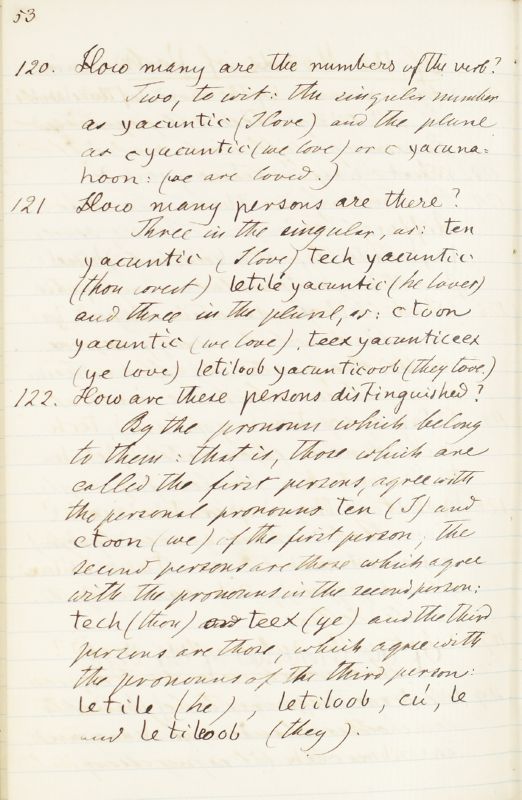 53
120. How many are the numbers of the verb?
Two, to wit: the singular number
as yacuntic (I love) and the plural
as c yacuntic (we love) or c yacuna=
hoon: (we are loved.)
121 How many persons are there?
Three in the singular, as: ten
yacuntic (I love) tech yacuntic
(thou lovest) letilé yacuntic (he loves)
and three in the plural, as: ctoon
yacuntic (we love), teex yacunticeex
(ye love) letiloob yacunticoob (they love.)
122. How are these persons distinguished?
By the pronouns which belong
to them: that is, those which are
called the first persons, agree with
the personal pronouns ten (I) and
ctoon (we) of the first person, the
second persons are those which agree
with the pronouns in the second person:
tech (thou) and teex (ye) and the third
persons are those, which agree with
the pronouns of the third person:
letile (he), letiloob, cú, le
and letiloob (they).